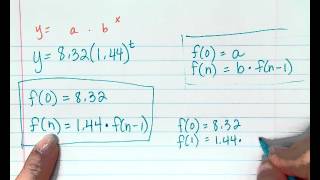 y = a · b^x
y = 8.32(1.44)^t
f(0) = a
f(n) = b · f(n-1)
f(0) = 8.32
f(n) = 1.44 · f(n-1)
f(0) = 8.32
f(1) = 1.44 ·